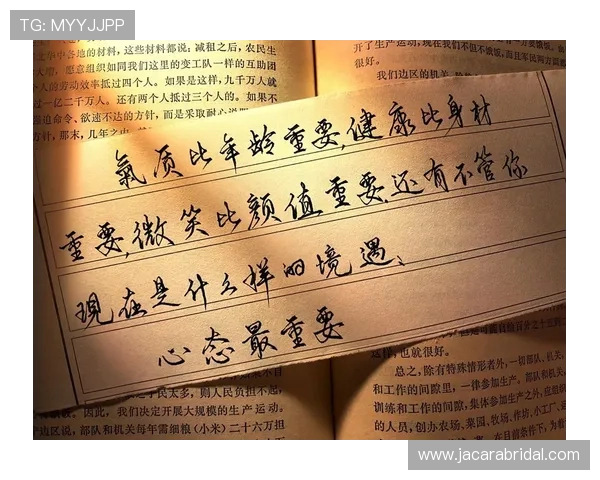 TG: MYYJJPP
北华中各地的材料，这些材料都说：减租之后，农民生
大增，愿意组织如同我们这里的变工队一样的互助团
的劳动效率抵过四个人。如果是这样，九千万人就
过一亿二千万人。还有两个人抵过三个人的。如果不
强迫命令、欲速不达的方针，而是采取耐心说服
方针，那末，几年之内
开了生产运动，现在我们不但不饿饭，而且军民两方面
很好。
我们边区的机关
氣质比年龄重要,健康比身材
重要,微笑比颜值重要,还有不管你
现在是什么样的境遇、
心态最重要
这样，也就很好。
总之，除有特殊情形者外，一切部队、机关
和工作的间隙里，一律参加生产。部队和机关
训练和工作的间隙，集体参加生产之外，应组织
的人员，创办农场、菜园、牧场、作坊、小工厂、
在目前条件下，为着
之手民太多，则人民负担不起，
因此，我们决定开展大规模的生产运动。
边区说，部队和机关每年需细粮（小米）二十六万担
www.jacarabridal.com